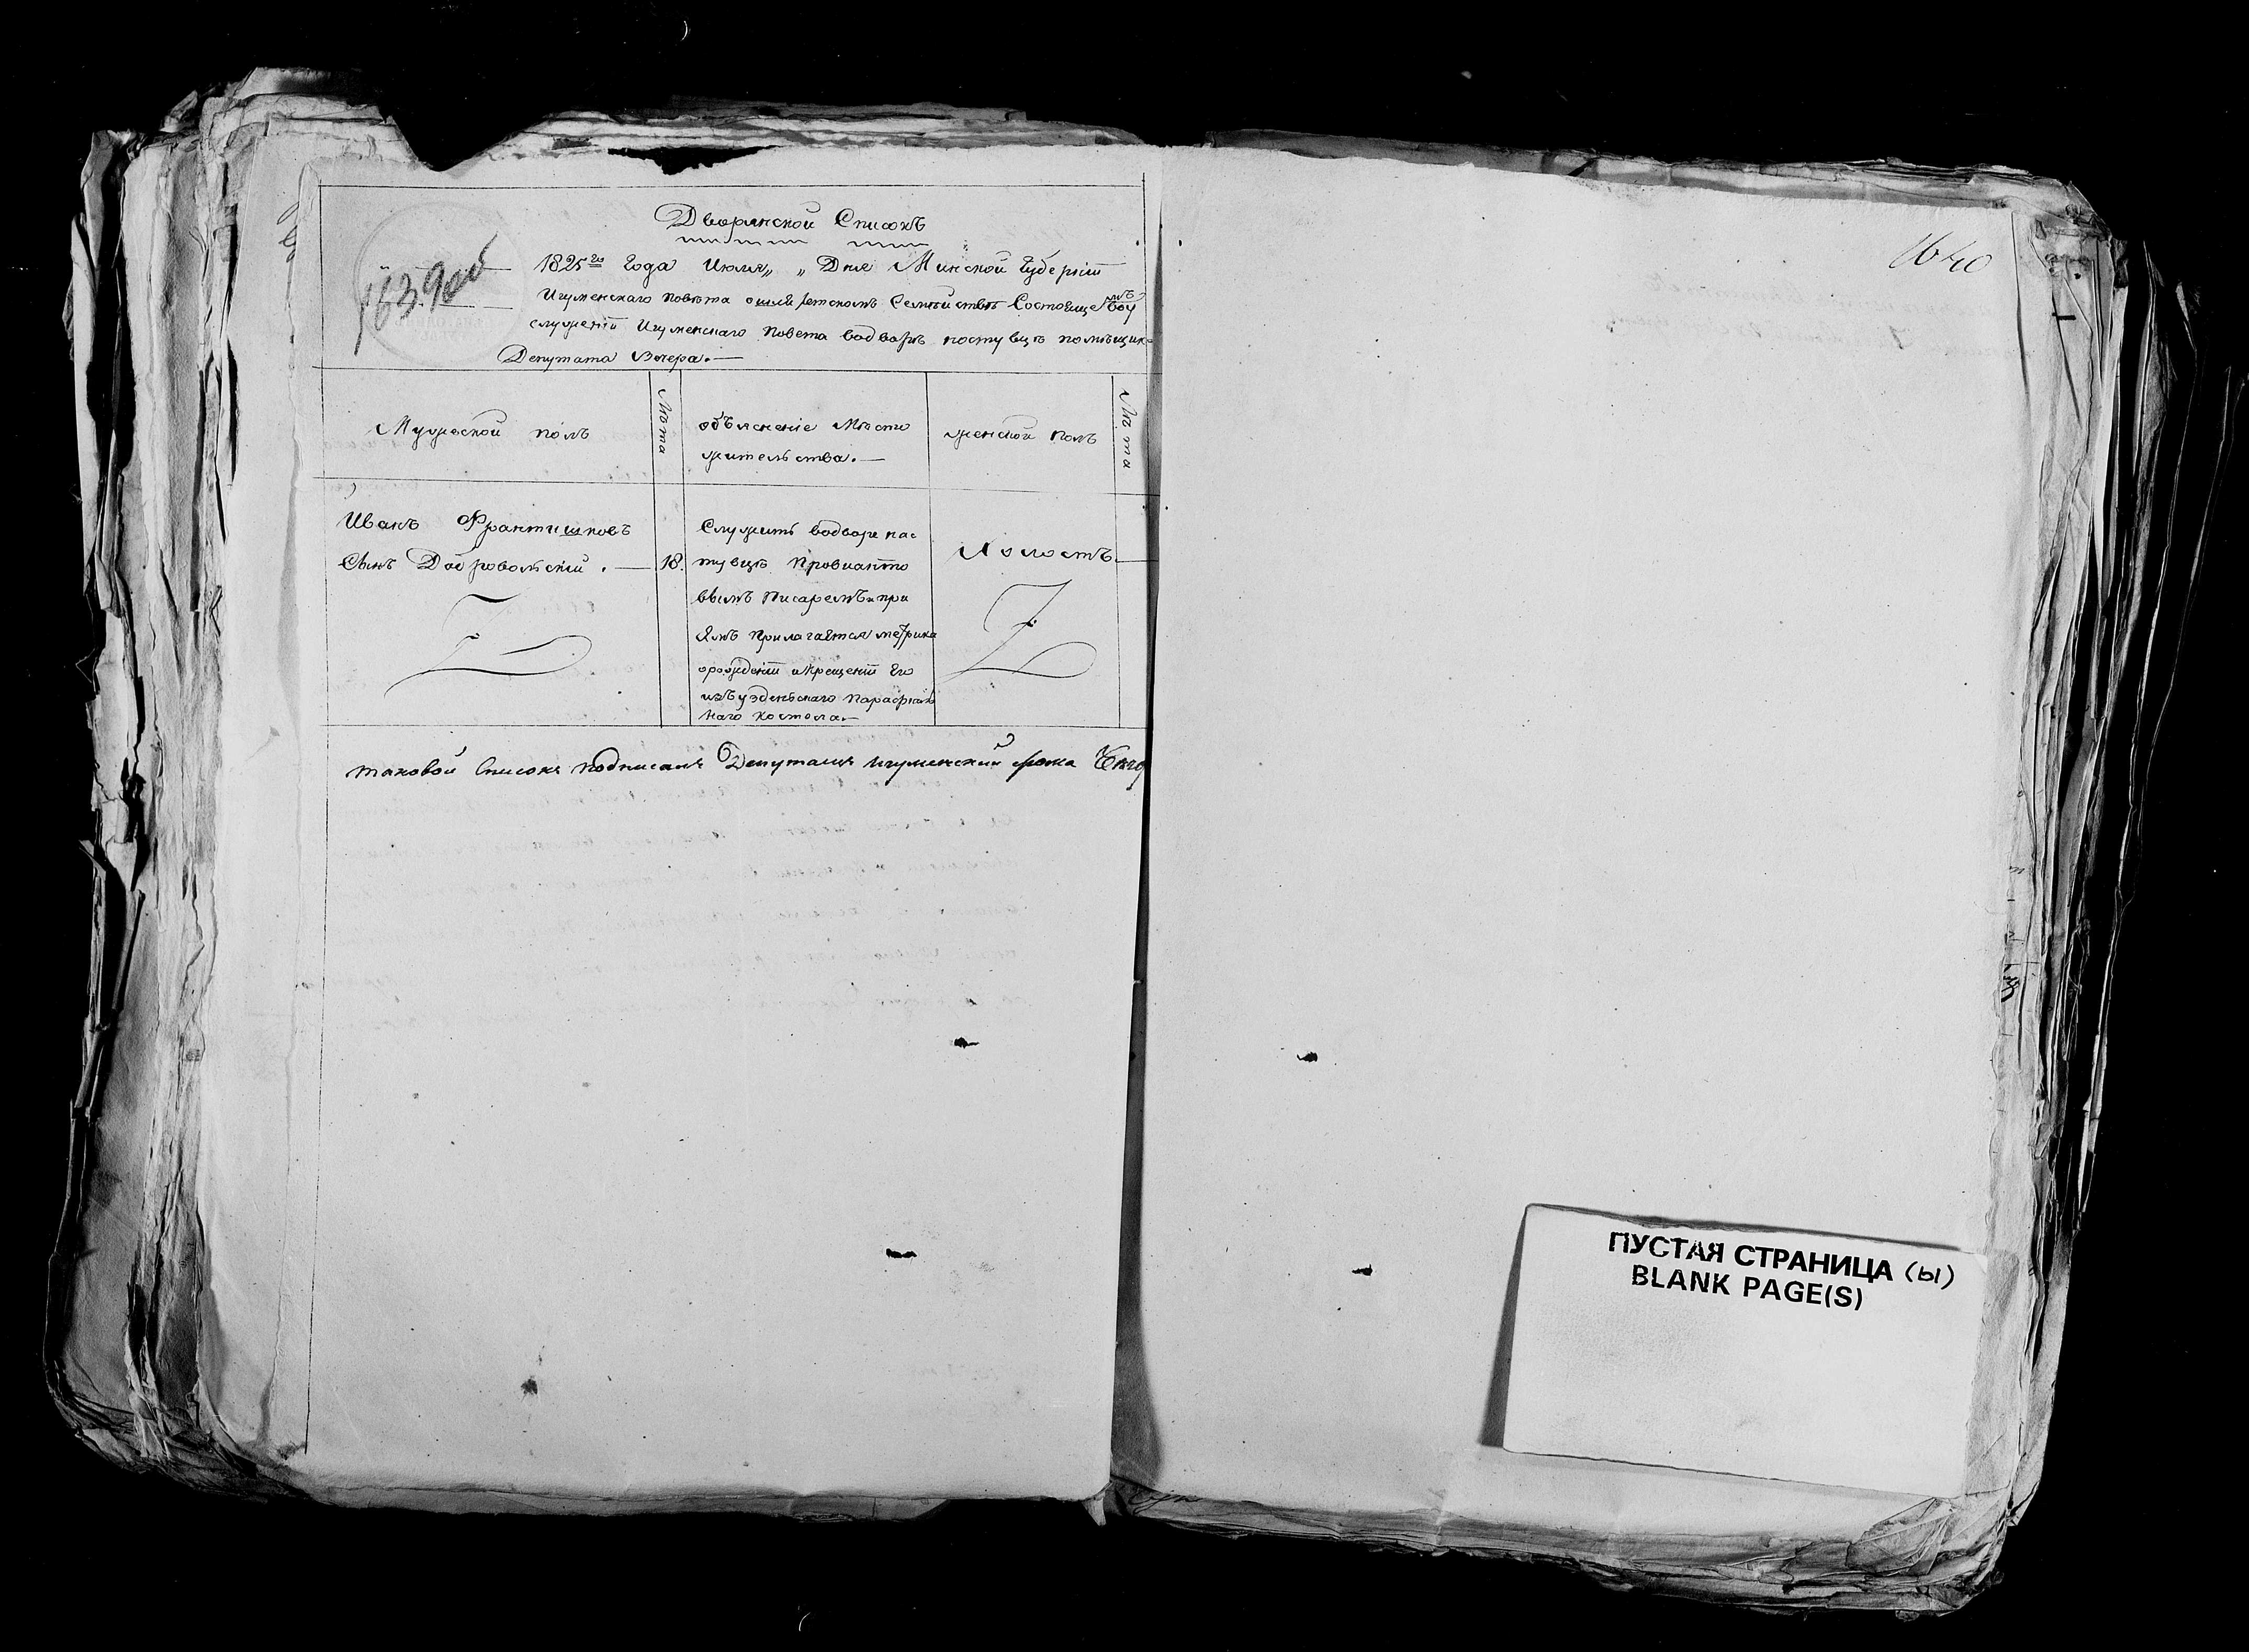 Дворянской Списокъ
1639 об
1825го Года Июля „ „ Дня Минской Губерніи
Игуменскаго Повѣта о шляхетскомъ Семѣйствѣ Состоящемъ воу
служеніи Игуменскаго Повета водворѣ постувцѣ помѣщик
Депутата Вечера.—
Мужеской полъ
Лѣта
объясненіе Мѣста
жительства.—
женской полъ
Лѣта
Иванъ Франтишковъ
Сынъ Добровольскій.—
18.
Служитъ водворе пас
тувцѣ Провианто
вымъ Писаремъ и при
Ямъ прилагается метрика
орождені икрещеніи Его
изъ узденскаго парафиаль
наго костела.—
Холостъ.—
таковой Списокъ подписалъ Депутатъ игуменский
1640
ПУСТАЯ СТРАНИЦА (Ы)
BLANK PAGE(S)